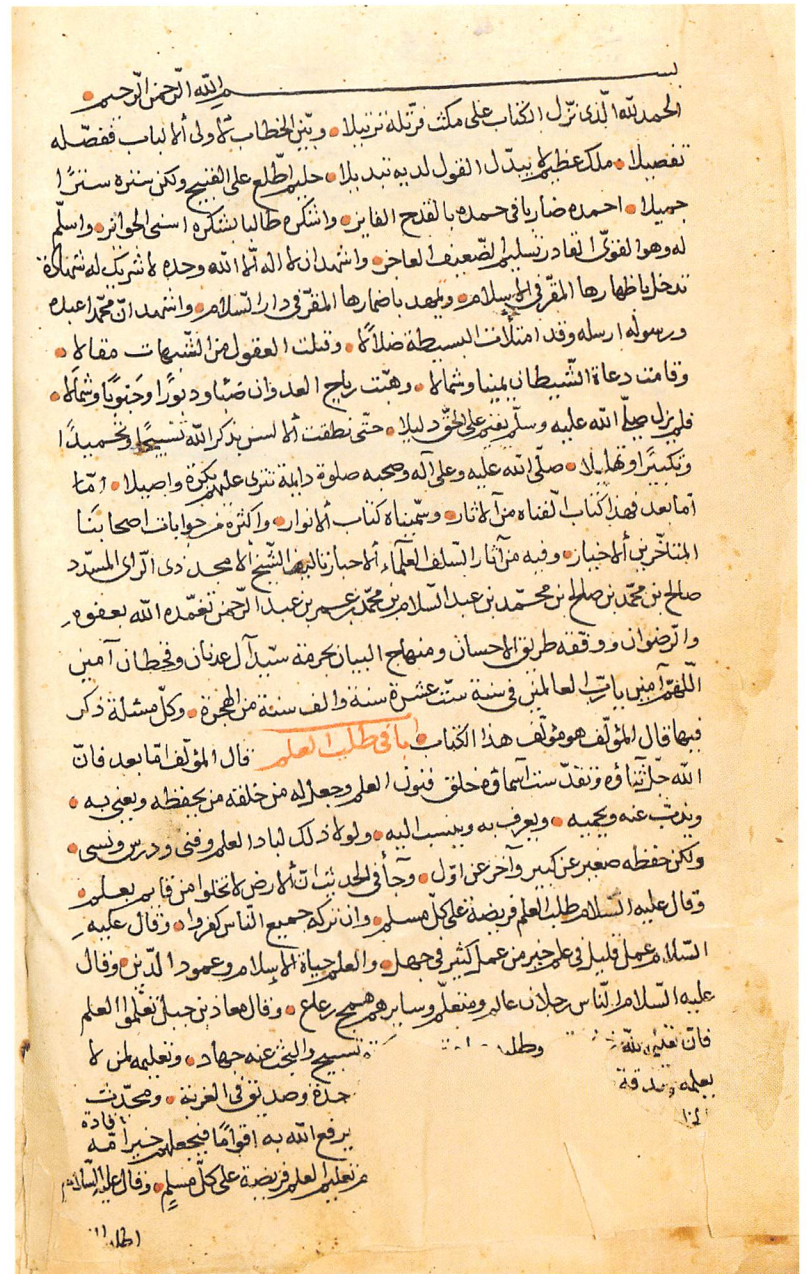 بسم الله الرحمن الرحيم
الحمد لله الّذى نزّل الكتاب على مكث فرتّله ترتيلا • وبيّن الخطاب لاولى الالباب ففصّله
تفصيلا • ملك عظيم لا يبدّل القول لديه تبديلا • حليم اطّلع على القبيح ولكن ستره سترًا
جميلا • احمده ضاربا فى حمده بالقدح الفايز • واشكره طالبا بشكره اسنى الجوائز • واسلّم
له وهو القوىّ القادر تسليم الضّعيف العاجز • واشهد ان لا اله الّا الله وحده لا شريك له شهادة
تدخل باظهارها المقرّ فى الاسلام • وتمهد باضمارها المقرّ فى دار السّلام • واشهد انّ محمّدا عبده
ورسوله ارسله وقد امتلأت البسيطة ضلالًا • وقبلت العقول من الشّبهات مقالا •
وقامت دعاة الشّيطان يمينا وشمالا • وهبّت رياح العدوان صبًا ودبورًا وجنوبًا وشمالًا •
فلم يزل صلّى الله عليه وسلّم يقيم على الحقّ دليلا • حتّى نطقت الالسن بذكر الله تسبيحًا وتحميدًا
وتكبيرًا وتهليلا • صلّى الله عليه وعلى آله وصحبه صلوة دايمة تترى عليهم بكرة واصيلا • امّا
امّا بعد فهذا كتاب الّفناه من الآثار • وسمّيناه كتاب الانوار • واكثره من جوابات اصحابنا
المتاخّرين الاخيار • وفيه من آثار السّلف العلمآء الاحبار تاليف الشّيخ الامجد ذى الراى المسدّد
صالح بن محمّد بن صالح بن محمّد بن عبد السّلام بن محمّد بن عمر بن عبد الرّحمن تغمّده الله بعفوه
والرّضوان ووفقه طريق الاحسان ومنهاج البيان بحرمة سيّد آل عدنان وقحطان آمين
اللّهمّ آمين يا ربّ العالمين فى سنة ستّ عشرة سنة والف سنة من الهجرة • وكلّ مسئلة ذكر
فيها قال المؤلّف هو مؤلّف هذا الكتاب • باب فى طلب العلم قال المؤلّف امّا بعد فانّ
الله جلّ ثناؤه وتقدّست اسماؤه خلق فنون العلم وجعل له من خلقه من يحفظه ويعنى به •
ويذبّ عنه ويحميه • ويعرف به وينسب اليه • ولولا ذلك لباد العلم وفنى ودرس ونسى •
ولكن حفظه صغير عن كبير وآخر عن اوّل • وجآ فى الحديث انّ الارض لا تخلوا من قايم بعلم •
وقال عليه السّلام طلب العلم فريضة على كلّ مسلم • وان تركه جميع النّاس كفروا • وقال عليه
السّلام عمل قليل فى علم خير من عمل كثير فى جهل • والعلم حياة الاسلام وعمود الدّين • وقال
عليه السّلام النّاس رجلان عالم ومتعلّم وسايرهم همج رعاع • وقال معاذ بن جبل تعلّموا العلم
فانّ تعليمه لله وطلبه تسبيح والبحث عنه جهاد • وتعليمه لمن لا
يعلمه صدقة حدة وصديق فى الغربة • ومحدّث
يرفع الله به اقوامًا فيجعلهم خير امّة قادة
من تعليم العلم فريضة على كلّ مسلم • وقال عليه السّلام
اطلبوا